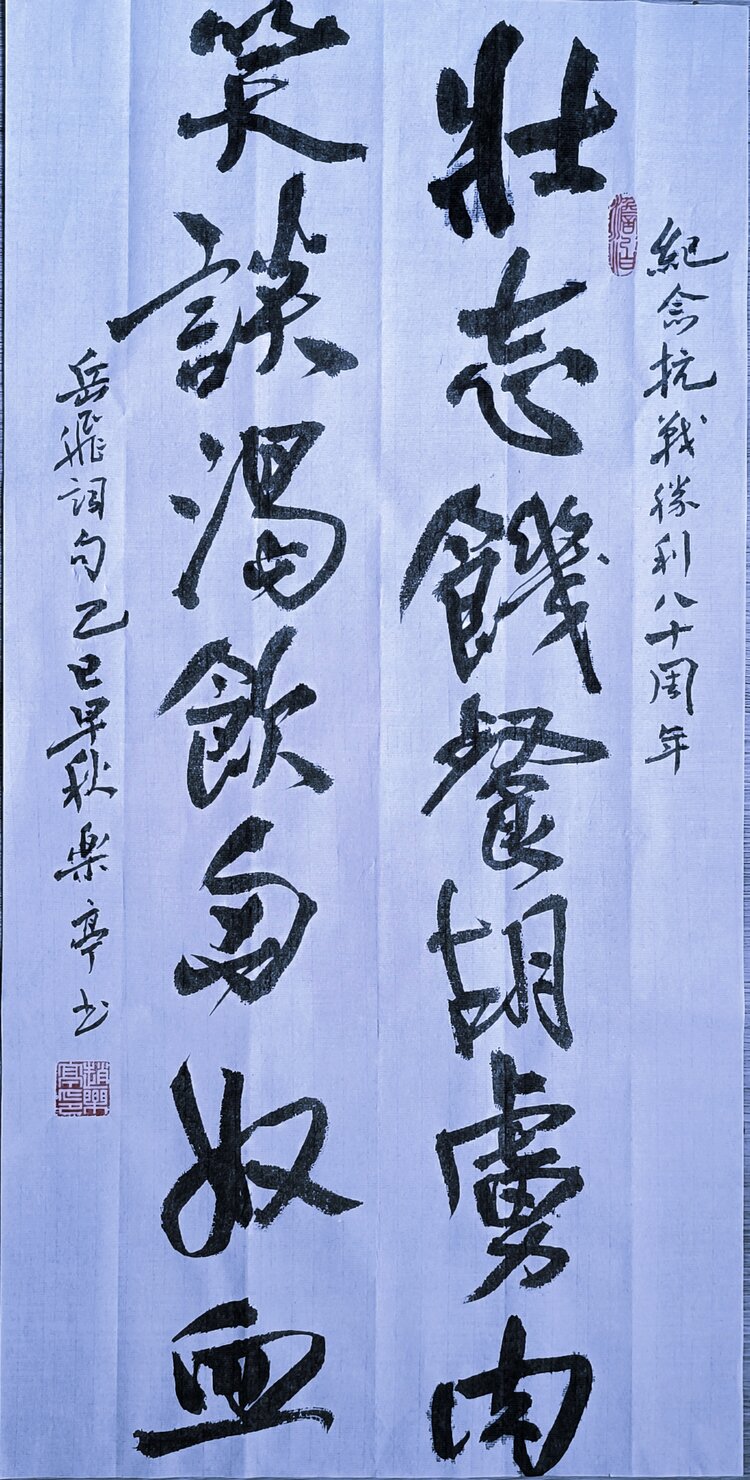 紀念抗戰勝利八十周年
澹泊
壯志饑餐胡虜肉
笑談渴飲匈奴血
岳飛詞句乙巳早秋楽亭书
趙樂亭印